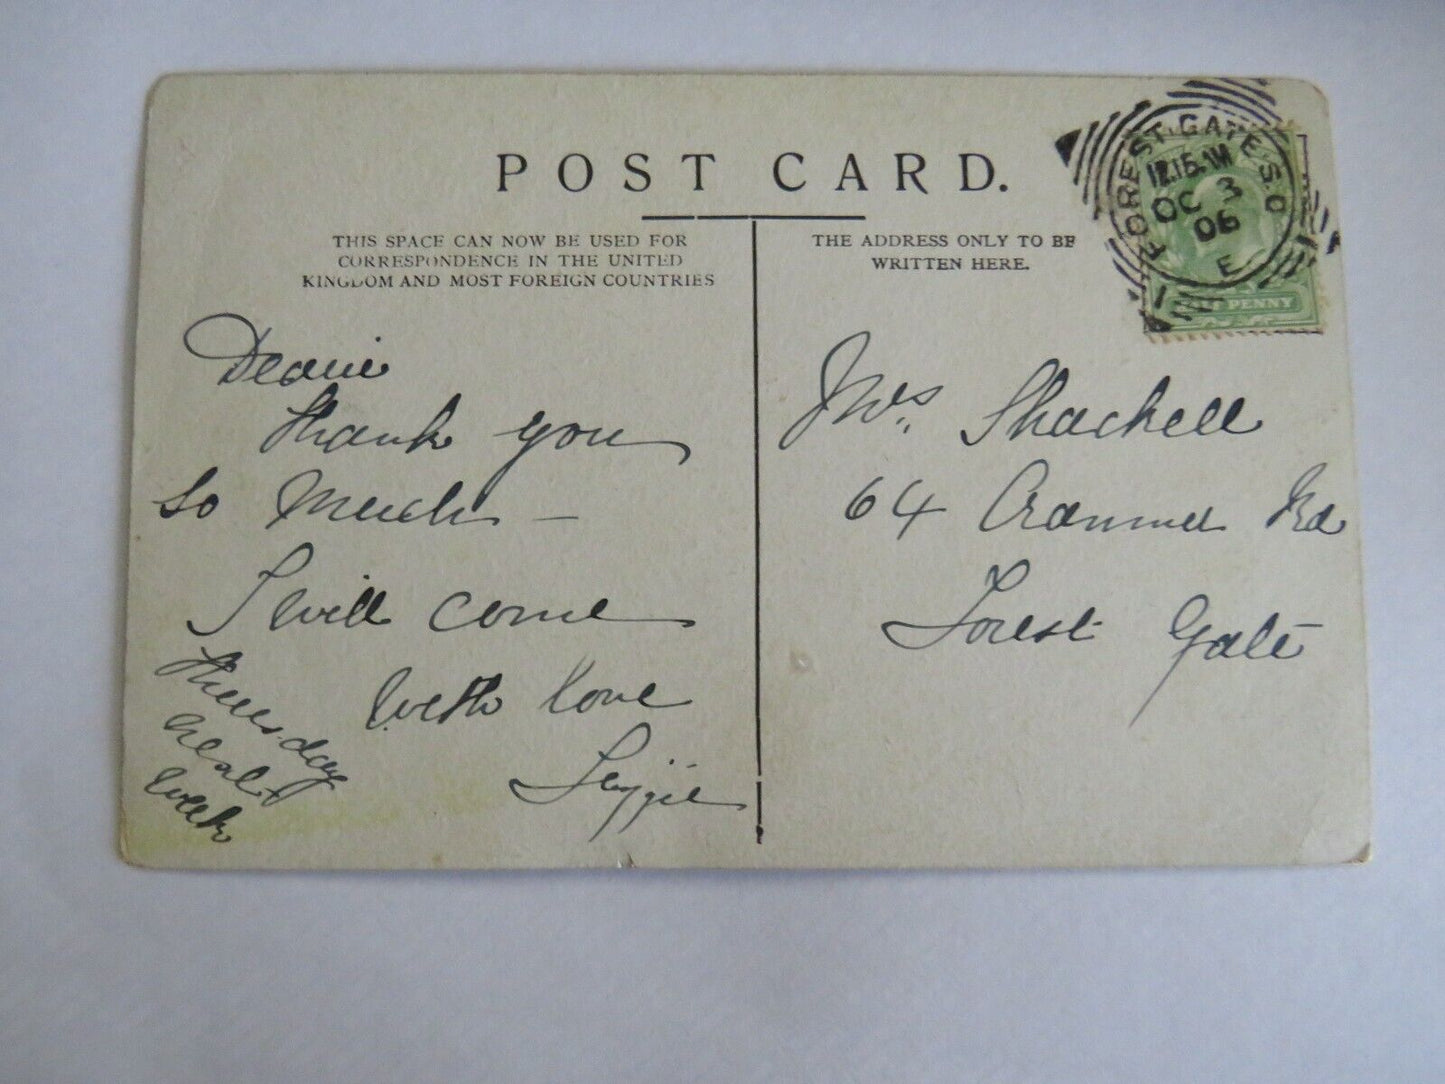 POST CARD.
THIS SPACE CAN NOW BE USED FOR
CORRESPONDENCE IN THE UNITED
KINGDOM AND MOST FOREIGN COUNTRIES
THE ADDRESS ONLY TO BE
WRITTEN HERE.
FOREST GATE S.O.
OC 3
06
E
PENNY
Dearie
Thank you
So Much —
I will come
Thursday
next
week
With Love
Mrs. Shackell
64 Cranmer Rd
Forest Gate